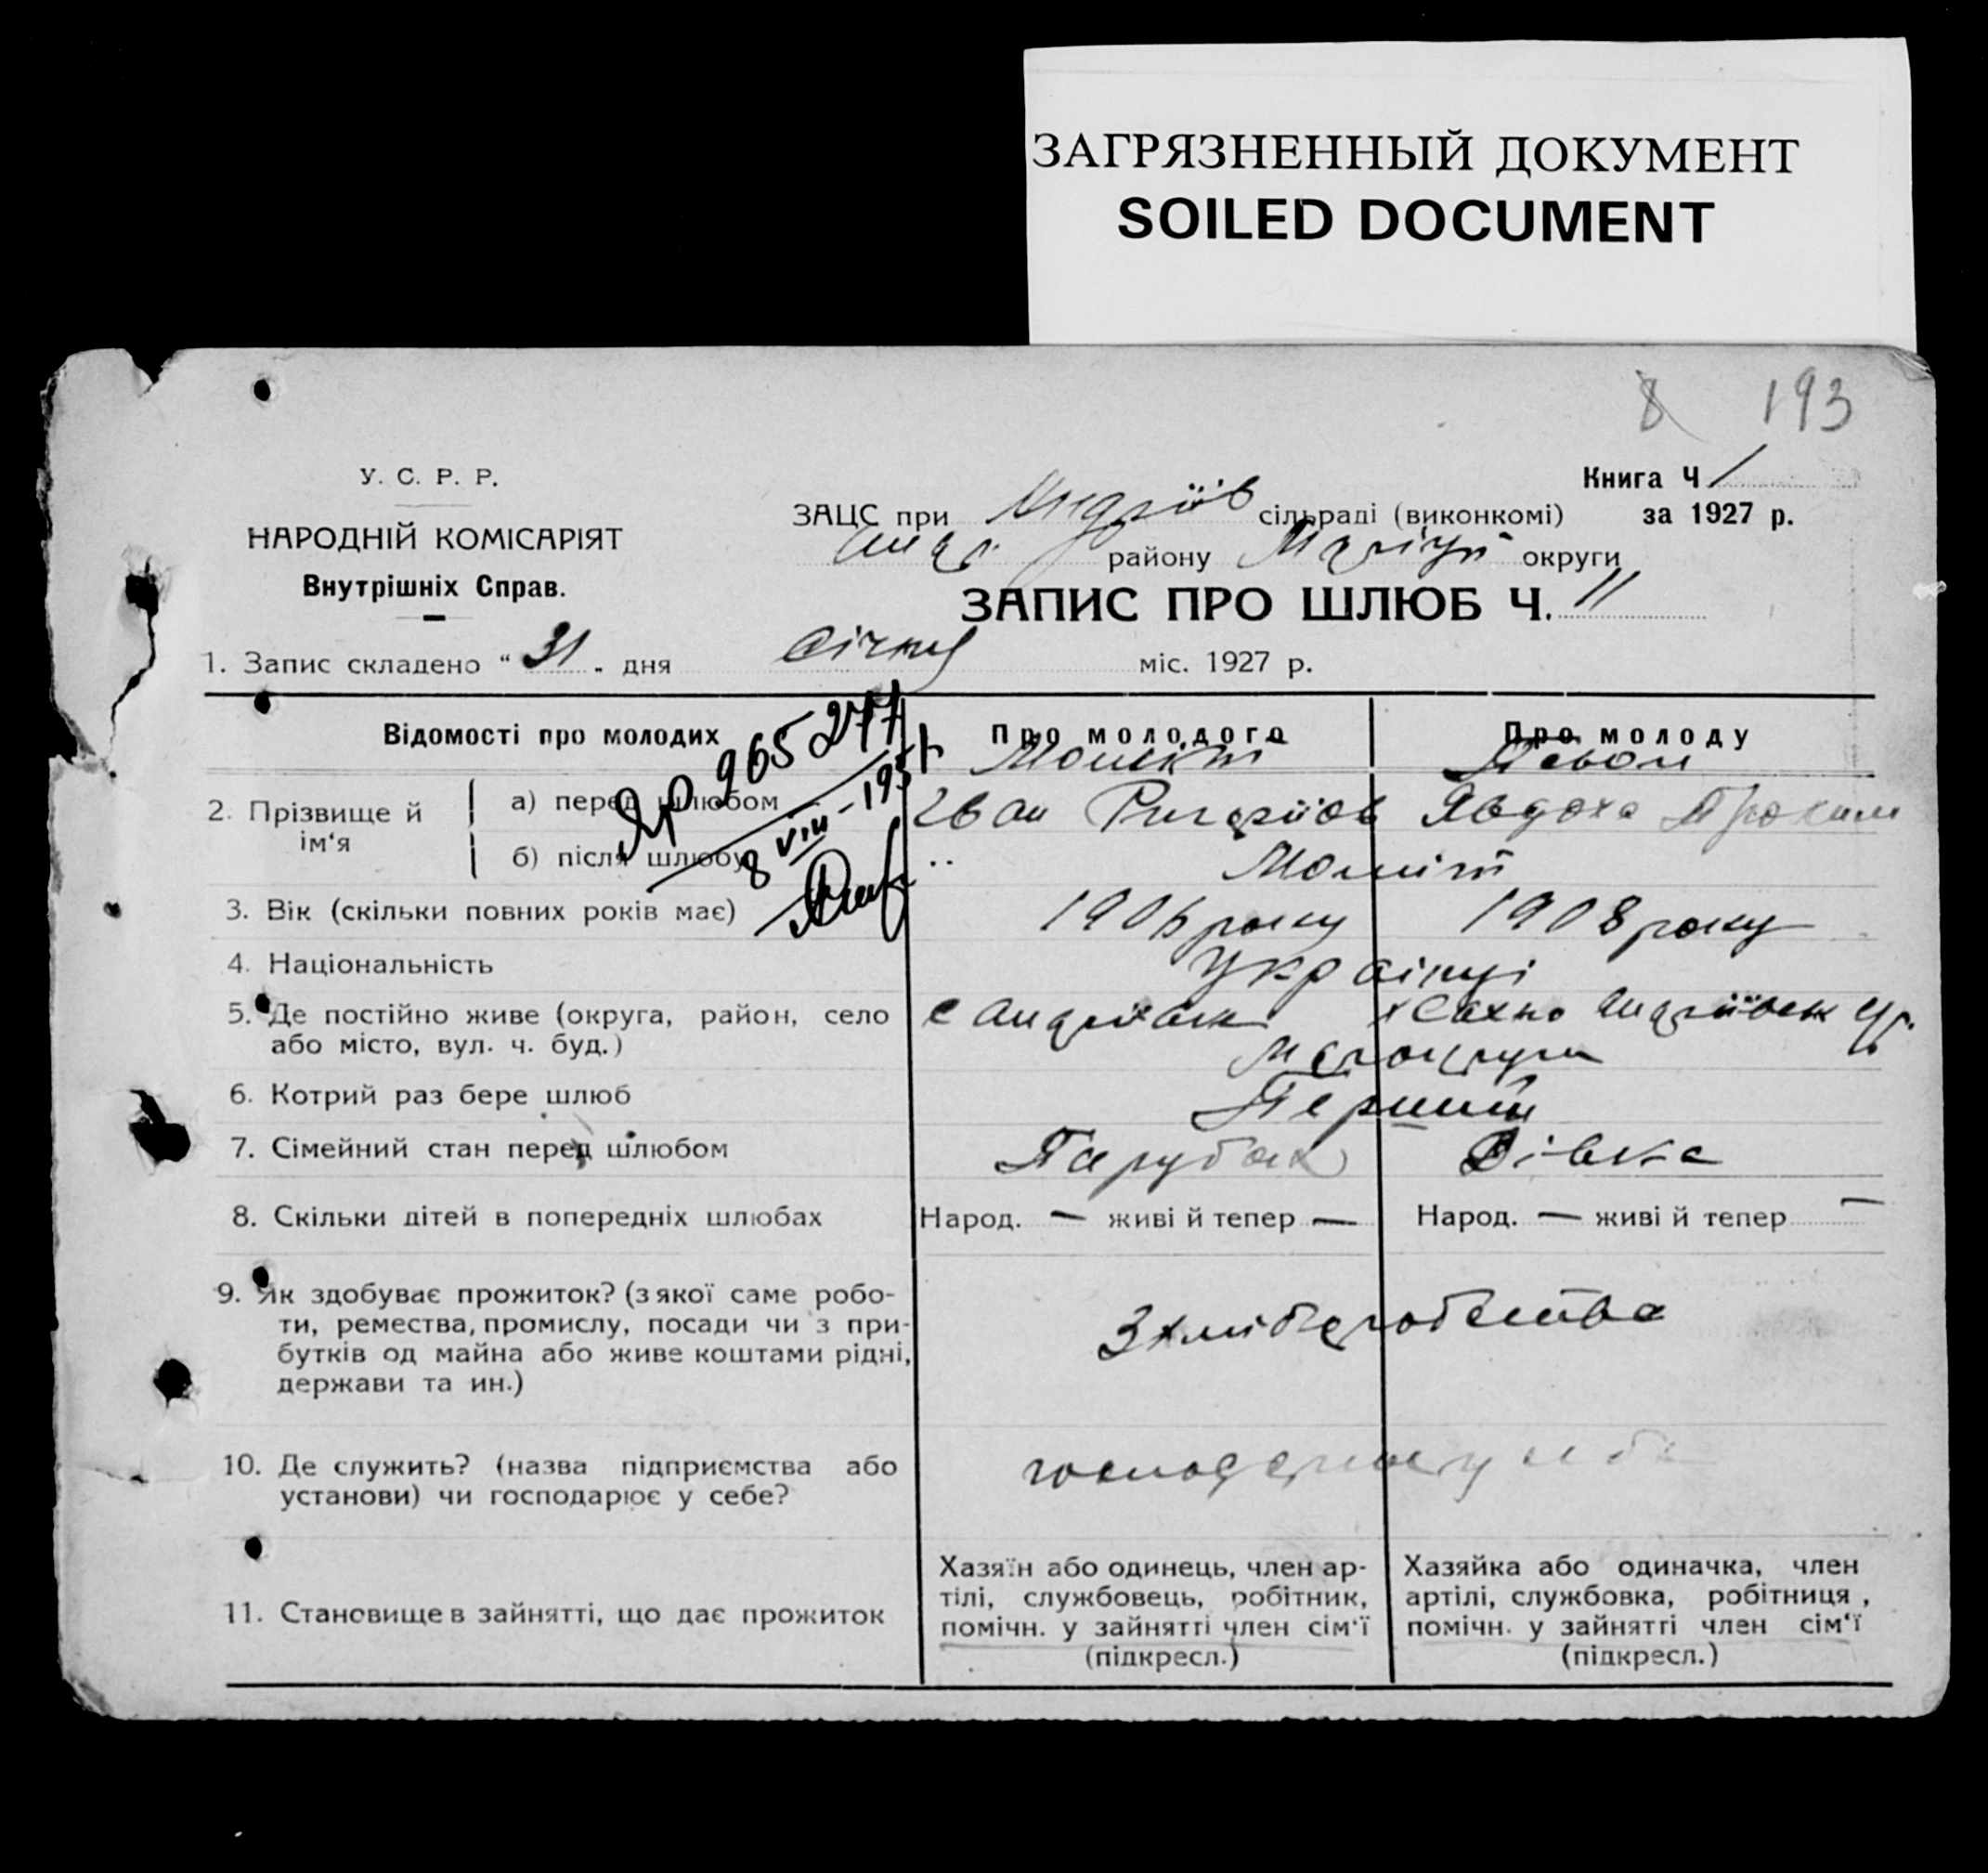 ЗАГРЯЗНЕННЫЙ ДОКУМЕНТ
SOILED DOCUMENT
8 193
У. С. Р. Р.
НАРОДНІЙ КОМІСАРІЯТ
Внутрішніх Справ.
Книга Ч 1
за 1927 р.
ЗАЦС при Андріїв сільраді (виконкомі)
Андр. району округи
ЗАПИС ПРО ШЛЮБ Ч. 11
1. Запис складено " 31 " дня Січня міс. 1927 р.
Відомості про молодих
Про молодого
Про молоду
2. Прізвище й ім'я
а) перед шлюбом
Іван Явдоха Проким
б) після шлюбу
ЯР 965277
8 VIII - 195
3. Вік (скільки повних років має)
1906 року 1908 року
4. Національність
Українці
5. Де постійно живе (округа, район, село
або місто, вул. ч. буд.)
6. Котрий раз бере шлюб
Перший
7. Сімейний стан перед шлюбом
Парубок Дівка
8. Скільки дітей в попередніх шлюбах
Народ. — живі й тепер —
Народ. — живі й тепер —
9. Як здобуває прожиток? (з якої саме робо-
ти, ремества, промислу, посади чи з при-
бутків од майна або живе коштами рідні,
держави та ин.)
З хліборобства
10. Де служить? (назва підприємства або
установи) чи господарює у себе?
господарює у себе
11. Становище в зайнятті, що дає прожиток
Хазяїн або одинець, член ар-
тілі, службовець, робітник,
помічн. у зайнятті член сім'ї
(підкресл.)
Хазяйка або одиначка, член
артілі, службовка, робітниця,
помічн. у зайнятті член сім'ї
(підкресл.)